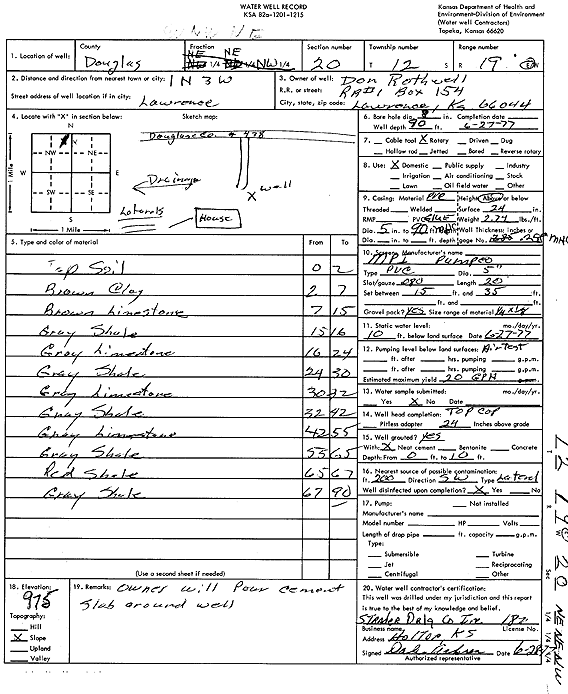 WATER WELL RECORD
KSA 82a-1201-1215
Kansas Department of Health and
Environment-Division of Environment
(Water well Contractors)
Topeka, Kansas 66620
1. Location of well: County Douglas Fraction NE NE NW 1/4 Section number 20 Township number T 12 S Range number R 19 E/W
2. Distance and direction from nearest town or city: 1 N 3 W
Street address of well location if in city: Lawrence
3. Owner of well: Don Rothwell
R.R. or street: RR#1 Box 154
City, state, zip code: Lawrence, Ks 66044
4. Locate with "X" in section below:
Sketch map:
N
NW NE
W E
SW SE
S
1 Mile
1 Mile
Douglas Co. # 438
X well
Drainage
Laterals
House
6. Bore hole dia. 8 in. Completion date
Well depth 90 ft. 6-27-77
7. Cable tool X Rotary Driven Dug
Hollow rod Jetted Bored Reverse rotary
8. Use: X Domestic Public supply Industry
Irrigation Air conditioning Stock
Lawn Oil field water Other
9. Casing: Material PVC Height: Above or below
Threaded Welded Surface 24 in.
RMP PVC Glue Weight 2.74 lbs./ft.
Dia. 5 in. to 90 ft. depth Wall Thickness: inches or
Dia. in. to ft. depth gage No. .258
5. Type and color of material From To
Top Soil 0 2
Brown Clay 2 7
Brown Limestone 7 15
Gray Shale 15 16
Gray Limestone 16 24
Gray Shale 24 30
Gray Limestone 30 32
Gray Shale 32 42
Gray Limestone 42 55
Gray Shale 55 65
Red Shale 65 67
Gray Shale 67 90
(Use a second sheet if needed)
10. Screen: Manufacturer's name
Type PVC Dia. 5"
Slot/gauze .080 Length 20
Set between 15 ft. and 35 ft.
ft. and ft.
Gravel pack? yes Size range of material
11. Static water level: mo./day/yr.
10 ft. below land surface Date 6-27-77
12. Pumping level below land surfaces: Air test
ft. after hrs. pumping g.p.m.
ft. after hrs. pumping g.p.m.
Estimated maximum yield 20 GPH
13. Water sample submitted: mo./day/yr.
Yes X No Date
14. Well head completion: Top cap
Pitless adapter 24 Inches above grade
15. Well grouted? yes
With: X Neat cement Bentonite Concrete
Depth: From 0 ft. to 10 ft.
16. Nearest source of possible contamination:
ft. 200 Direction SW Type Lateral
Well disinfected upon completion? X Yes No
17. Pump: Not installed
Manufacturer's name
Model number HP Volts
Length of drop pipe ft. capacity g.p.m.
Type:
Submersible Turbine
Jet Reciprocating
Centrifugal Other
18. Elevation: 975
Topography:
Hill
X Slope
Upland
Valley
19. Remarks: Owner will Pour cement
Slab around well
20. Water well contractor's certification:
This well was drilled under my jurisdiction and this report
is true to the best of my knowledge and belief.
Strader Drlg Co Inc. 182
Business name License No.
Address Holton, KS
Signed 6-28-77
Authorized representative
T 12 R 19 E W Sec 20 1/4 1/4 1/4 NE NE NW